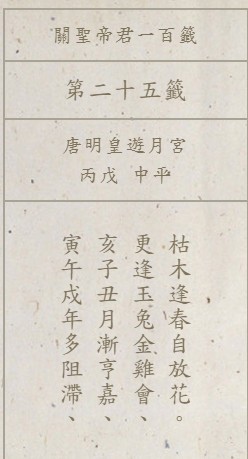 關聖帝君一百籤
第二十五籤
唐明皇遊月宮
丙戊 中平
寅午戌年多阻滯、
亥子丑月漸亨嘉、
更逢玉兔金雞會、
枯木逢春自放花。